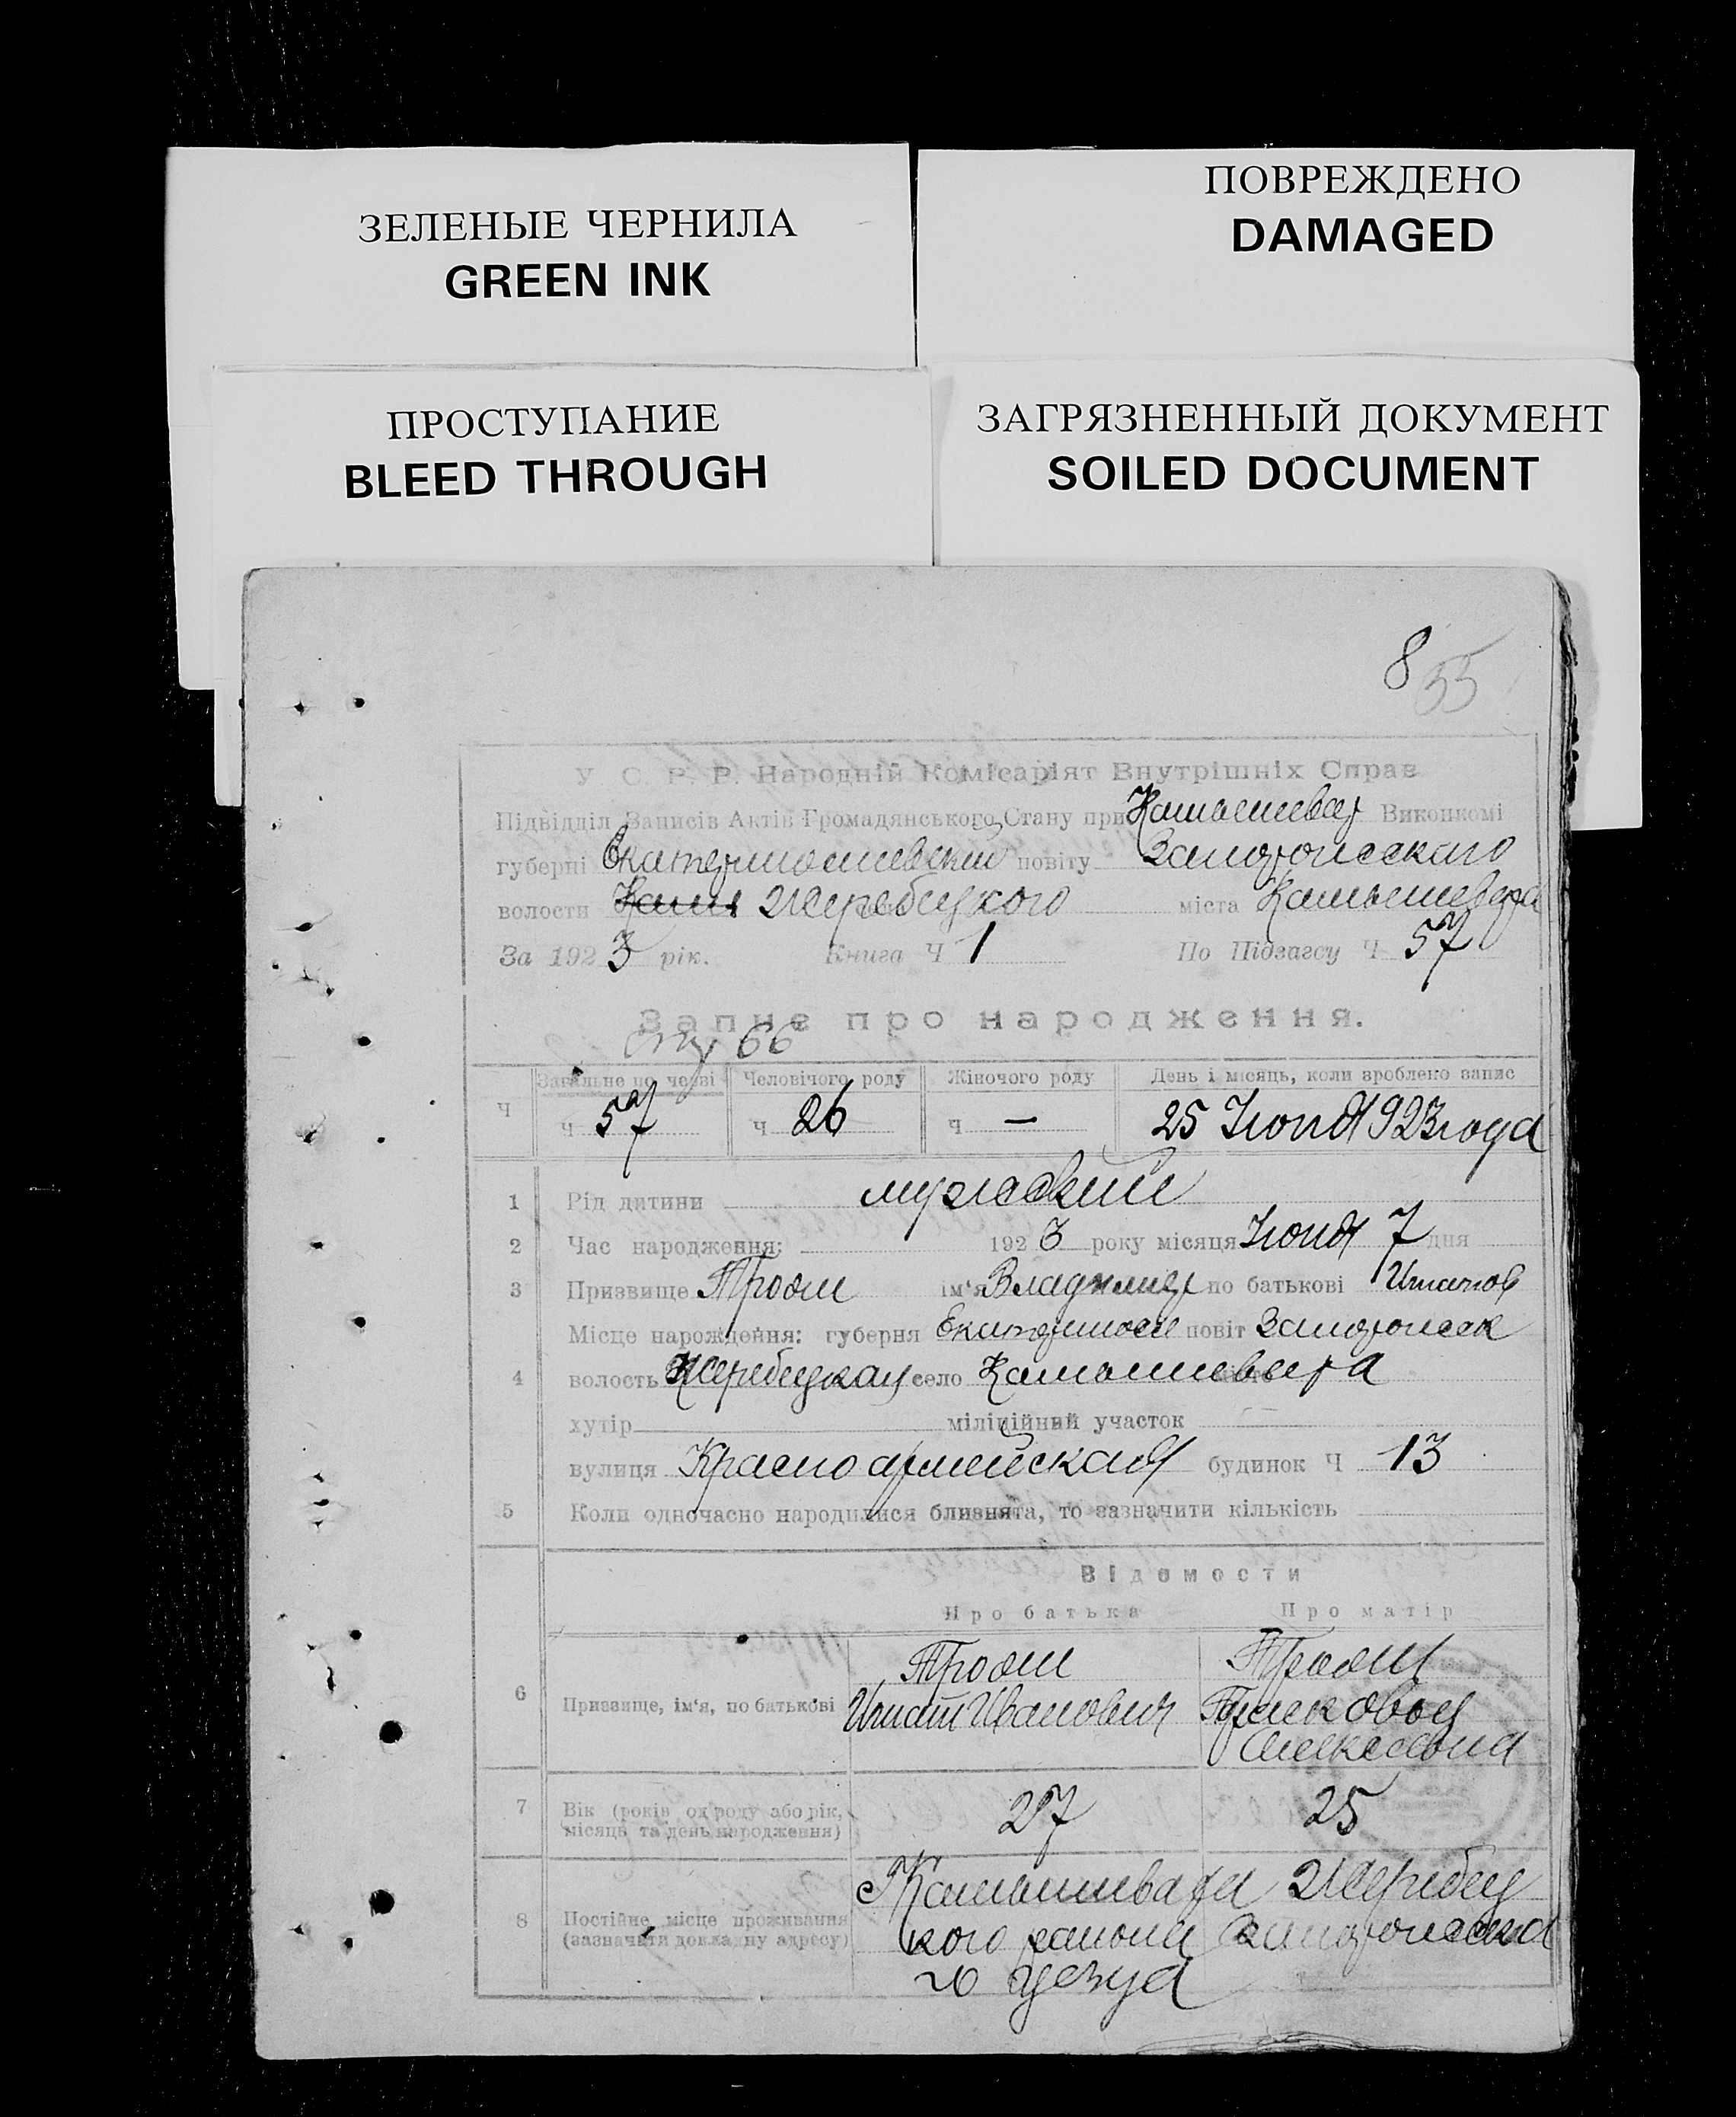 ЗЕЛЕНЫЕ ЧЕРНИЛА
GREEN INK
ПОВРЕЖДЕНО
DAMAGED
ПРОСТУПАНИЕ
BLEED THROUGH
ЗАГРЯЗНЕННЫЙ ДОКУМЕНТ
SOILED DOCUMENT
8 35
У. С. Р. Р. Народній Комісаріят Внутрішніх Справ
Підвідділ Записів Актів Громадянського Стану при Камышевах Виконкомі
губерні Екатеринославской повіту Запорожскаго
волости Жеребецкого міста Камышеваха
За 1923 рік. Книга Ч 1 По Підзагсу Ч 57
Запис про народження.
66
Загальне по черзі Человічого роду Жіночого роду День і місяць, коли зроблено запис
Ч ч 57 ч 26 ч — 25 Июня 1923 года
1 Рід дитини мужский
2 Час народження: 1923 року місяця Июня 7 дня
3 Призвище Трош ім'я Владимир по батькові Игнатов
Місце нарождення: губерня Екатериносл повіт Запорожск
4 волость Жеребецкая село Камышеваха
хутір міліційний участок
вулиця Красно армейская будинок Ч 13
5 Коли одночасно народилися близнята, то зазначити кількість
Відомости
Про батька Про матір
Трош Трош
6 Призвище, ім'я, по батькові Игнат Иванович
Алексеевна
7 Вік (років од роду або рік, місяць та день народження) 27 25
8 Постійне місце проживання (зазначити докладну адресу) Камышеваха Жеребец
кого района Запорожска
го уезда